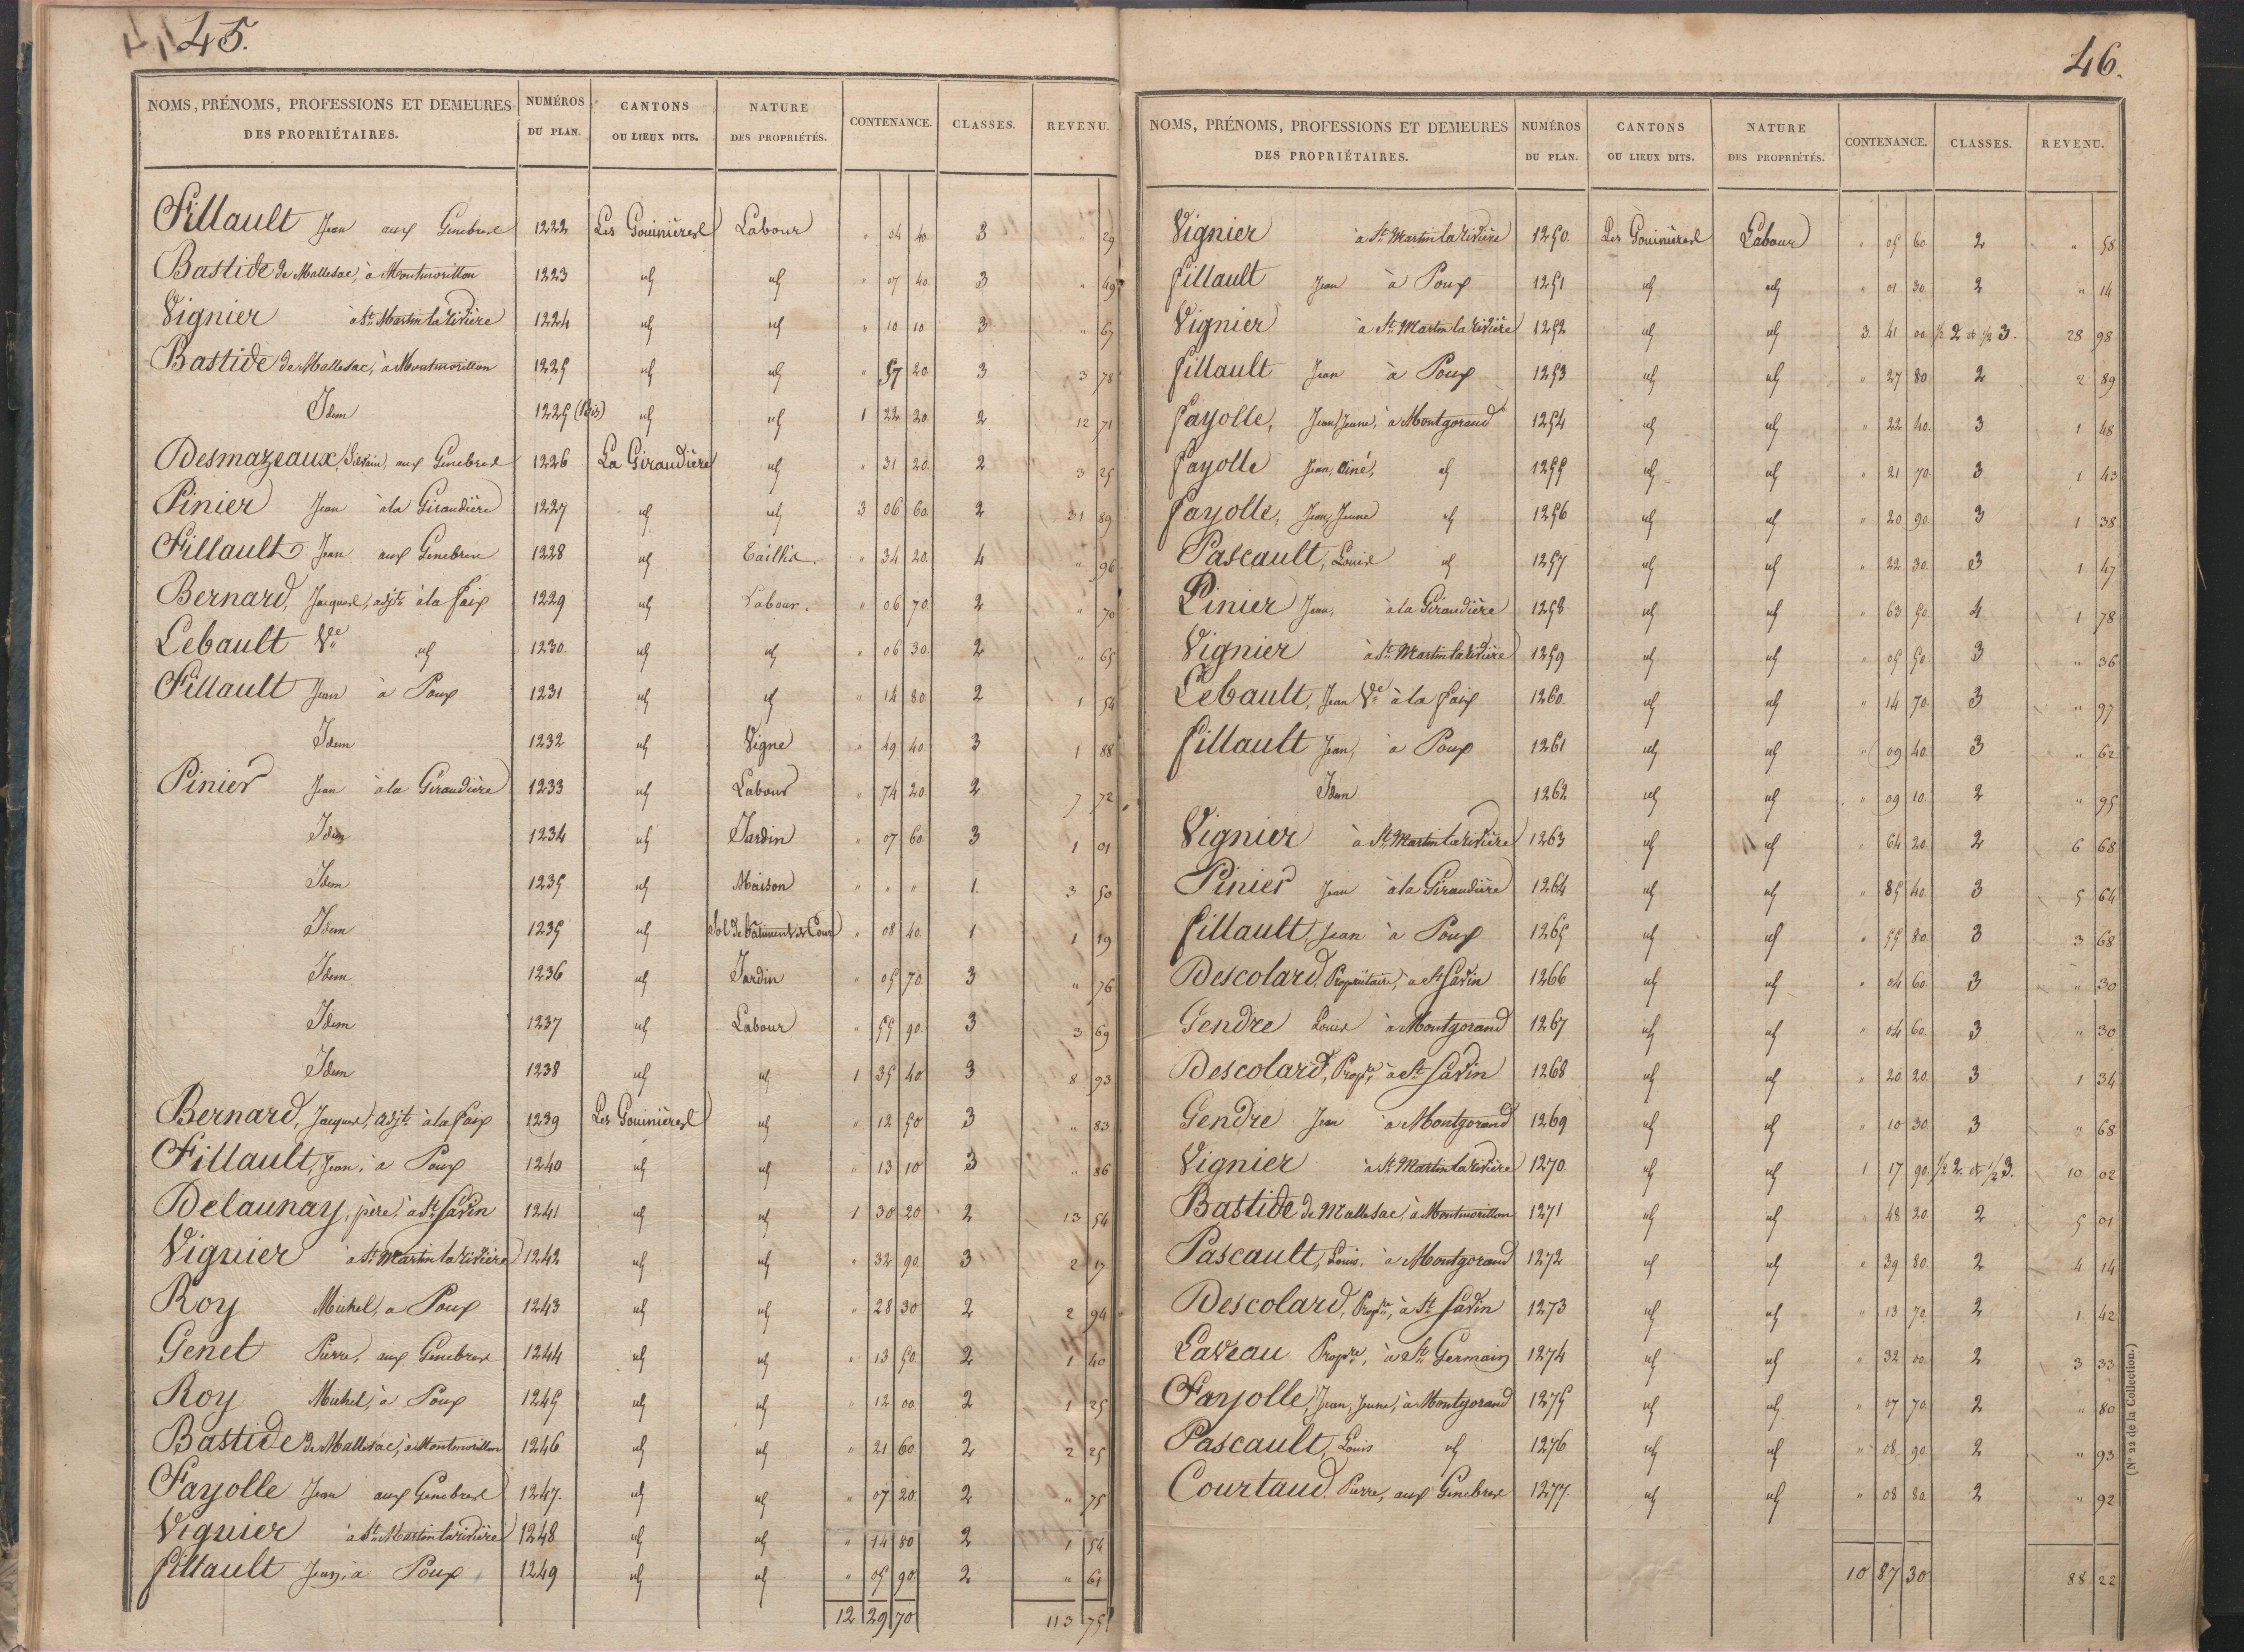 45.
NOMS, PRÉNOMS, PROFESSIONS ET DEMEURES DES PROPRIÉTAIRES. NUMÉROS DU PLAN. CANTONS OU LIEUX DITS. NATURE DES PROPRIÉTÉS. CONTENANCE. CLASSES. REVENU.
Fillault Jean aux Genebres 1222 Les Gouinières Labour " 04 40 3 " 29
Bastide de Mallesac, à Montmorillon 1223 id id " 07 40 3 " 49
Vignier à St Martin la rivière 1224 id id " 10 10 3 " 67
Bastide de Mallesac, à Montmorillon 1225 id id " 57 20 3 3 78
Idem 1225 (Bis) id id 1 22 20 2 12 71
Desmazeaux, Silvain, aux Genebres 1226 La Giraudière id " 31 20 2 3 25
Pinier Jean à la Giraudière 1227 id id 3 06 60 2 31 89
Fillault Jean aux Genebres 1228 id Taillis " 34 20 4 " 96
Bernard, Jacques, adjt à la faix 1229 id Labour. " 06 70 2 " 70
Lebault Ve id 1230 id id " 06 30 2 " 65
Fillault Jean à Poux 1231 id id " 14 80 2 1 54
Idem 1232 id Vigne " 49 40 3 1 88
Pinier Jean à la Giraudière 1233 id Labour " 74 20 2 7 72
Idem 1234 id Jardin " 07 60 3 1 01
Idem 1235 id Maison " " " 1 3 50
Idem 1235 id Sol de bâtiment & Cour " 08 40 1 1 19
Idem 1236 id Jardin " 05 70 3 " 76
Idem 1237 id Labour " 55 90 3 3 69
Idem 1238 id id 1 35 40 3 8 93
Bernard, Jacques, adjt à la faix 1239 Les Gouinières id " 12 50 3 " 83
Fillault, Jean, à Poux 1240 id id " 13 10 3 " 86
Delaunay, père, à St Savin 1241 id id 1 30 20 2 13 54
Vignier à St Martin la rivière 1242 id id " 32 90 3 2 17
Roy Michel, à Poux 1243 id id " 28 30 2 2 94
Genet Pierre, aux Genebres 1244 id id " 13 50 2 1 40
Roy Michel, à Poux 1245 id id " 12 00 2 1 25
Bastide de Mallesac, à Montmorillon 1246 id id " 21 60 2 2 25
Fayolle Jean aux Genebres 1247. id id " 07 20 2 " 75
Vignier à St Martin la rivière 1248 id id " 14 80 2 1 54
Fillault Jean, à Poux 1249 id id " 05 90 2 " 61
12 29 70 113 75
46.
NOMS, PRÉNOMS, PROFESSIONS ET DEMEURES DES PROPRIÉTAIRES. NUMÉROS DU PLAN. CANTONS OU LIEUX DITS. NATURE DES PROPRIÉTÉS. CONTENANCE. CLASSES. REVENU.
Vignier à St Martin la rivière 1250. Les Gouinières Labour " 05 60 2 " 58
fillault Jean à Poux 1251 id id " 01 30 2 " 14
Vignier à St Martin la rivière 1252 id id 3 41 00 1/2 2 & 1/2 3. 28 98
fillault Jean à Poux 1253 id id " 27 80 2 2 89
fayolle, Jean, Jeune, à Montgorand 1254 id id " 22 40 3 1 48
fayolle Jean, ainé, id 1255 id id " 21 70 3 1 43
fayolle, Jean, Jeune id 1256 id id " 20 90 3 1 38
Pascault, Louis id 1257 id id " 22 30 3 1 47
Pinier Jean, à la Giraudière 1258 id id " 63 50 4 1 78
Vignier à St Martin la rivière 1259 id id " 05 50 3 " 36
Lebault, Jean Ve à la faix 1260. id id " 14 70 3 " 97
fillault Jean, à Poux 1261 id id " 09 40 3 " 62
Idem 1262 id id " 09 10 2 " 95
Vignier à St Martin la rivière 1263 id id " 64 20 2 6 68
Pinier Jean à la Giraudière 1264 id id " 85 40 3 5 64
fillault, Jean à Poux 1265 id id " 55 80 3 3 68
Descolard, Propriétaire, à St Savin 1266 id id " 04 60 3 " 30
Gendre Louis à Montgorand 1267 id id " 04 60 3 " 30
Descolard, Propre, à St Savin 1268 id id " 20 20 3 1 34
Gendre Jean à Montgorand 1269 id id " 10 30 3 " 68
Vignier à St Martin la rivière 1270. id id 1 17 90 1/2 2. & 1/2 3. 10 02
Bastide de Mallesac, à Montmorillon 1271 id id " 48 20 2 5 01
Pascault, Louis, à Montgorand 1272 id id " 39 80 2 4 14
Descolard, Propre, à St Savin 1273 id id " 13 70 2 1 42
Laveau Propre, à St Germain 1274 id id " 32 00 2 3 33
Fayolle, Jean, Jeune, à Montgorand 1275 id id " 07 70 2 " 80
Pascault, Louis id 1276 id id " 08 90 2 " 93
Courtaud Pierre, aux Genebres 1277. id id " 08 80 2 " 92
10 87 30 88 22
(N° 22 de la Collection.)